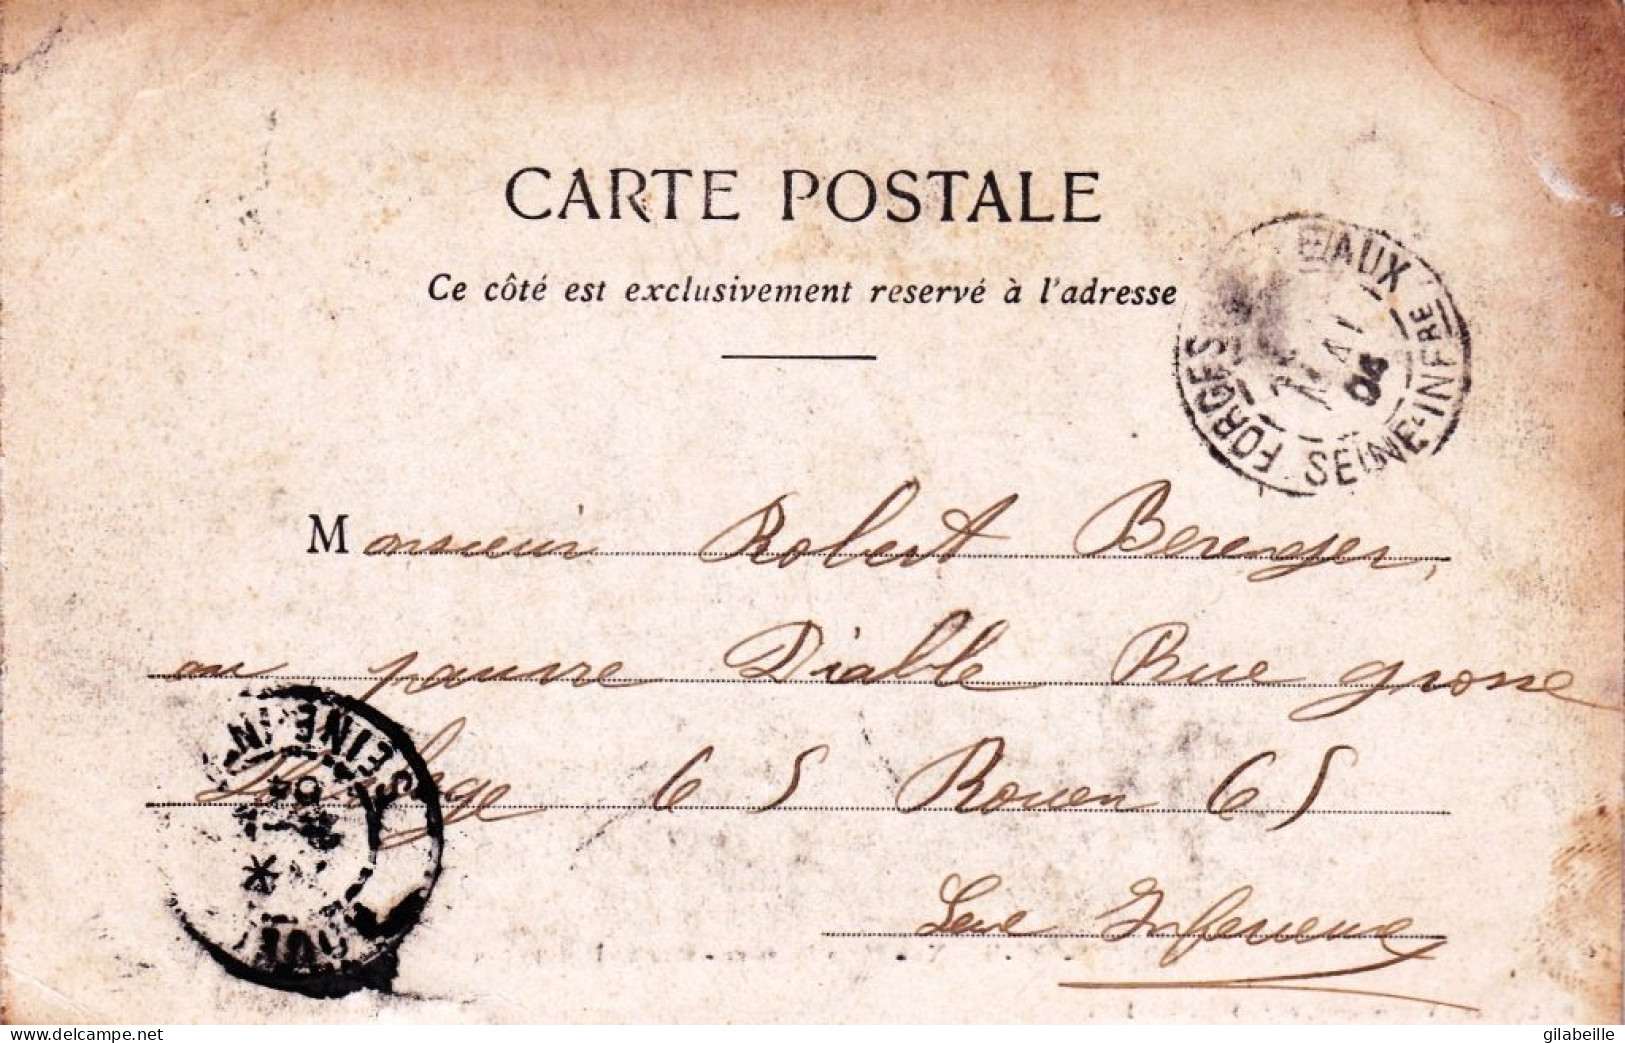 CARTE POSTALE
Ce côté est exclusivement reservé à l'adresse
FORGES EAUX SEINE-INFRE
MAI
04
Monsieur Robert Berenger,
au pauvre Diable Rue grosse
Horloge 65 Rouen 65
SEINE-IN
04
*
ROUEN
Seine Inferieure
delcampe.net
gilabeille